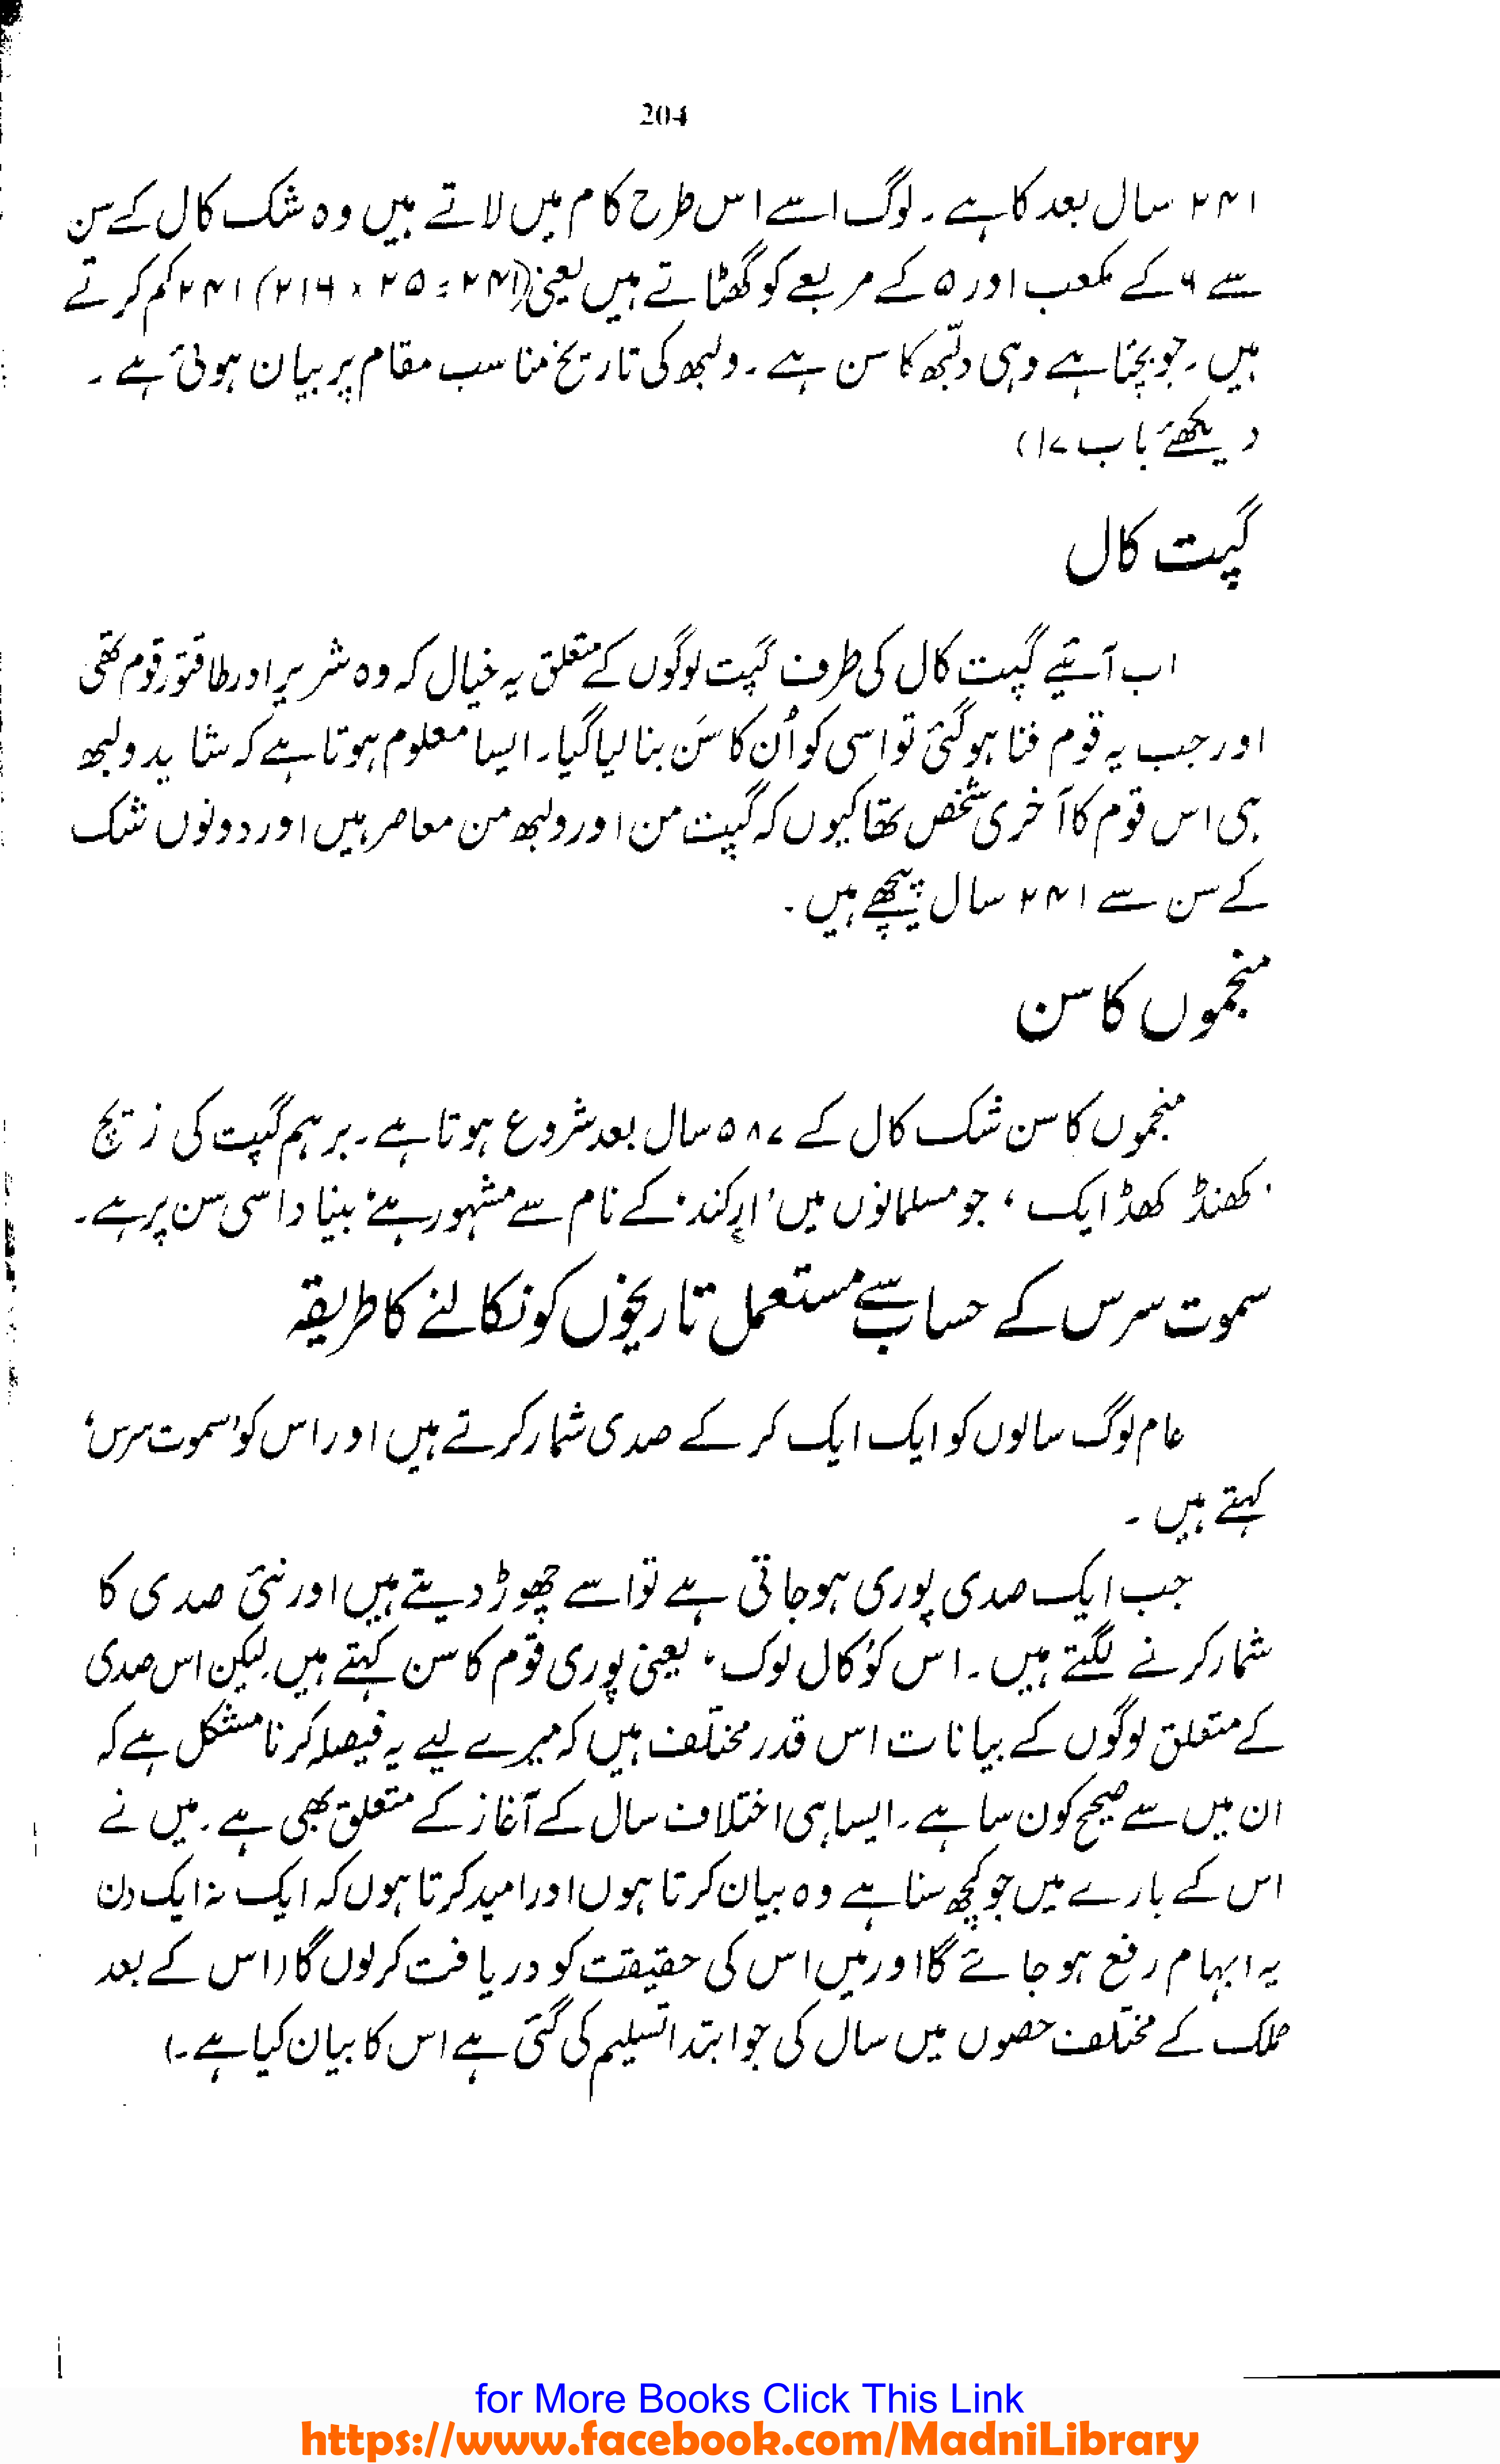 204
۲۴۱ سال بعد کا ہے ۔ لوگ اسے اس طرح کام میں لاتے ہیں وہ شک کال کے سن
سے ۶ کے مکعب اور ۵ کے مربعے کو گھٹاتے ہیں یعنی (۲۴۱ = ۲۵ × ۲۱۶) ۲۴۱ کم کرتے
ہیں ۔ جو بچتا ہے وہی ولبھ کا سن ہے ۔ ولبھ کی تاریخ مناسب مقام پر بیان ہوئی ہے ۔
دیکھئے باب ۱۷)
گپت کال
اب آئیے گپت کال کی طرف گپت لوگوں کے متعلق یہ خیال کہ وہ شریر اور طاقتور قوم تھی
اور جب یہ قوم فنا ہو گئی تو اسی کو اُن کا سَن بنا لیا گیا۔ ایسا معلوم ہوتا ہے کہ شاید ولبھ
ہی اس قوم کا آخری شخص تھا کیوں کہ گپت من اور ولبھ من معاصر ہیں اور دونوں شک
کے سن سے ۲۴۱ سال پیچھے ہیں ۔
منجموں کا سن
منجموں کا سن شک کال کے ۵۸۷ سال بعد شروع ہوتا ہے ۔ برہم گپت کی زتیج
'کھنڈ کھڈ ایک ' جو مسلمانوں میں 'ارکند' کے نام سے مشہور ہے' بنیاد اسی سن پر ہے ۔
سموت سرس کے حساب سے مستعمل تاریخوں کو نکالنے کا طریقہ
عام لوگ سالوں کو ایک ایک کر کے صدی شمار کرتے ہیں اور اس کو 'سموت سرس'
کہتے ہیں ۔
جب ایک صدی پوری ہو جاتی ہے تو اسے چھوڑ دیتے ہیں اور نئی صدی کا
شمار کرنے لگتے ہیں ۔ اس کو 'کال لوک ' یعنی پوری قوم کا سن کہتے ہیں لیکن اس صدی
کے متعلق لوگوں کے بیانات اس قدر مختلف ہیں کہ میرے لیے یہ فیصلہ کرنا مشکل ہے کہ
ان میں سے صحیح کون سا ہے ۔ ایسا ہی اختلاف سال کے آغاز کے متعلق بھی ہے ۔ میں نے
اس کے بارے میں جو کچھ سنا ہے وہ بیان کرتا ہوں اور امید کرتا ہوں کہ ایک نہ ایک دن
یہ ابہام رفع ہو جائے گا اور میں اس کی حقیقت کو دریافت کر لوں گا (اس کے بعد
ملک کے مختلف حصوں میں سال کی جو ابتدا تسلیم کی گئی ہے اس کا بیان کیا ہے ۔)
for More Books Click This Link
https://www.facebook.com/MadniLibrary